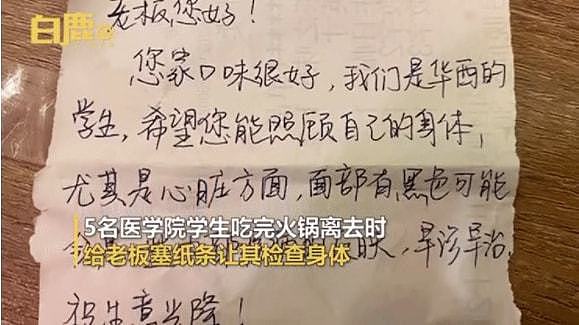 白鹿
老板您好！
您家口味很好，我们是华西的
学生，希望您能照顾自己的身体，
尤其是心脏方面，面部有黑色可能
肤，早诊早治，
5名医学院学生吃完火锅离去时
给老板塞纸条让其检查身体
祝生意兴隆！